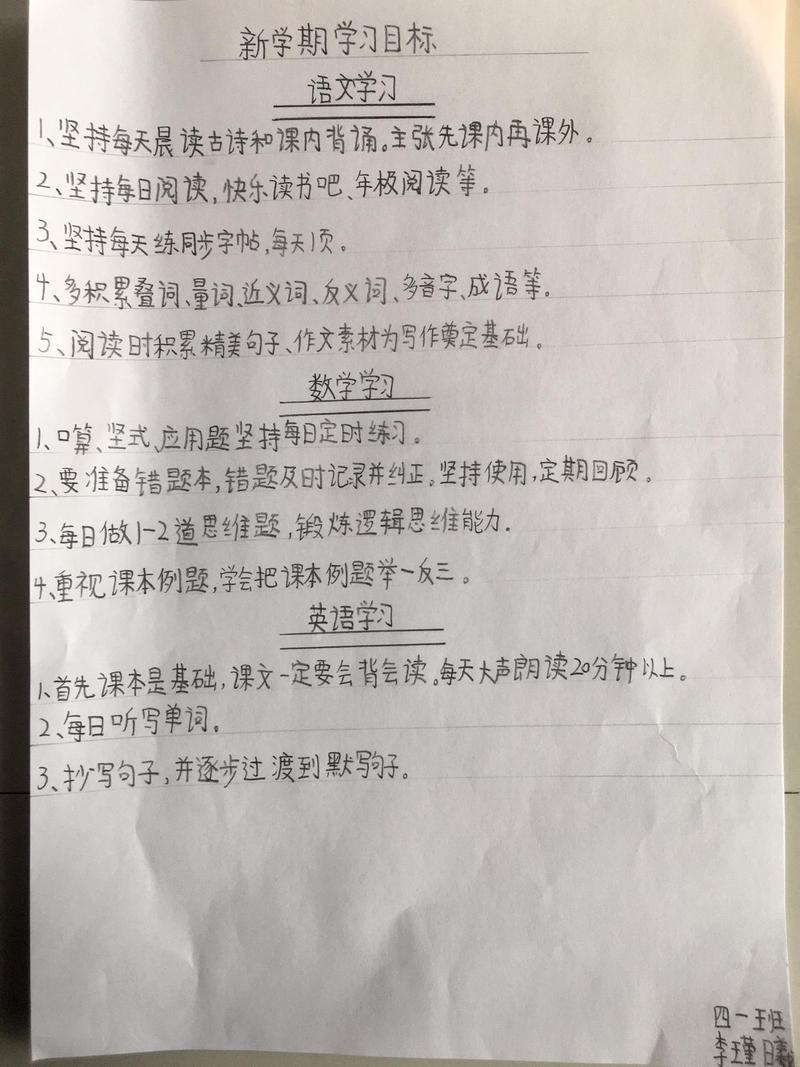 新学期学习目标
语文学习
1、坚持每天晨读古诗和课内背诵。主张先课内再课外。
2、坚持每日阅读,快乐读书吧、年极阅读等。
3、坚持每天练同步字帖,每天1页。
4、多积累叠词、量词、近义词、反义词、多音字、成语等。
5、阅读时积累精美句子、作文素材为写作奠定基础。
数学学习
1、口算、坚式、应用题坚持每日定时练习。
2、要准备错题本,错题及时记录并纠正。坚持使用,定期回顾。
3、每日做1-2道思维题,锻炼逻辑思维能力.
4、重视课本例题,学会把课本例题举一反三。
英语学习
1、首先课本是基础,课文一定要会背会读。每天大声朗读20分钟以上。
2、每日听写单词。
3、抄写句子,并逐步过渡到默写句子。
四一班
李瑾曦